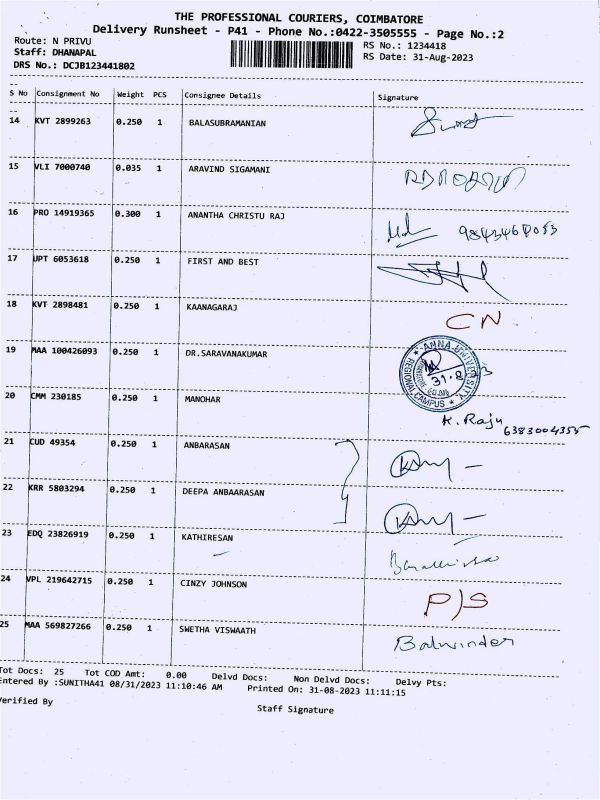 THE PROFESSIONAL COURIERS, COIMBATORE
Delivery Runsheet - P41 - Phone No.:0422-3505555 - Page No.:2
Route: N PRIVU
RS No.: 1234418
Staff: DHANAPAL
RS Date: 31-Aug-2023
DRS No.: DCJB123441802
S No Consignment No Weight PCS Consignee Details Signature
14 KVT 2899263 0.250 1 BALASUBRAMANIAN
15 VLI 7000740 0.035 1 ARAVIND SIGAMANI
16 PRO 14919365 0.300 1 ANANTHA CHRISTU RAJ
17 UPT 6053618 0.250 1 FIRST AND BEST
18 KVT 2898481 0.250 1 KAANAGARAJ CN
19 MAA 100426093 0.250 1 DR.SARAVANAKUMAR
ANNA UNIVERSITY
REGIONAL CAMPUS
31.8
20 CMM 230185 0.250 1 MANOHAR K. Raju 6383004355
21 CUD 49354 0.250 1 ANBARASAN
22 KRR 5803294 0.250 1 DEEPA ANBAARASAN
23 EDQ 23826919 0.250 1 KATHIRESAN
24 VPL 219642715 0.250 1 CINZY JOHNSON P/S
25 MAA 569827266 0.250 1 SWETHA VISWAATH Balwinder
Tot Docs: 25 Tot COD Amt: 0.00 Delvd Docs: Non Delvd Docs: Delvy Pts:
Entered By :SUNITHA41 08/31/2023 11:10:46 AM Printed On: 31-08-2023 11:11:15
Verified By
Staff Signature